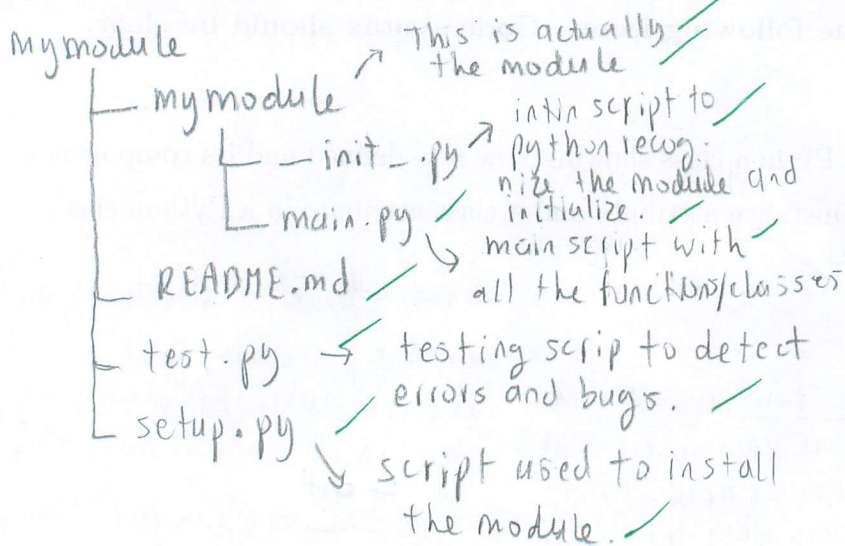 mymodule
This is actually
the module
mymodule
init script to
__init__.py
python recog
nize the module and
initialize
main.py
main script with
all the functions/classes
README.md
test.py → testing scrip to detect
errors and bugs.
setup.py
script used to install
the module.